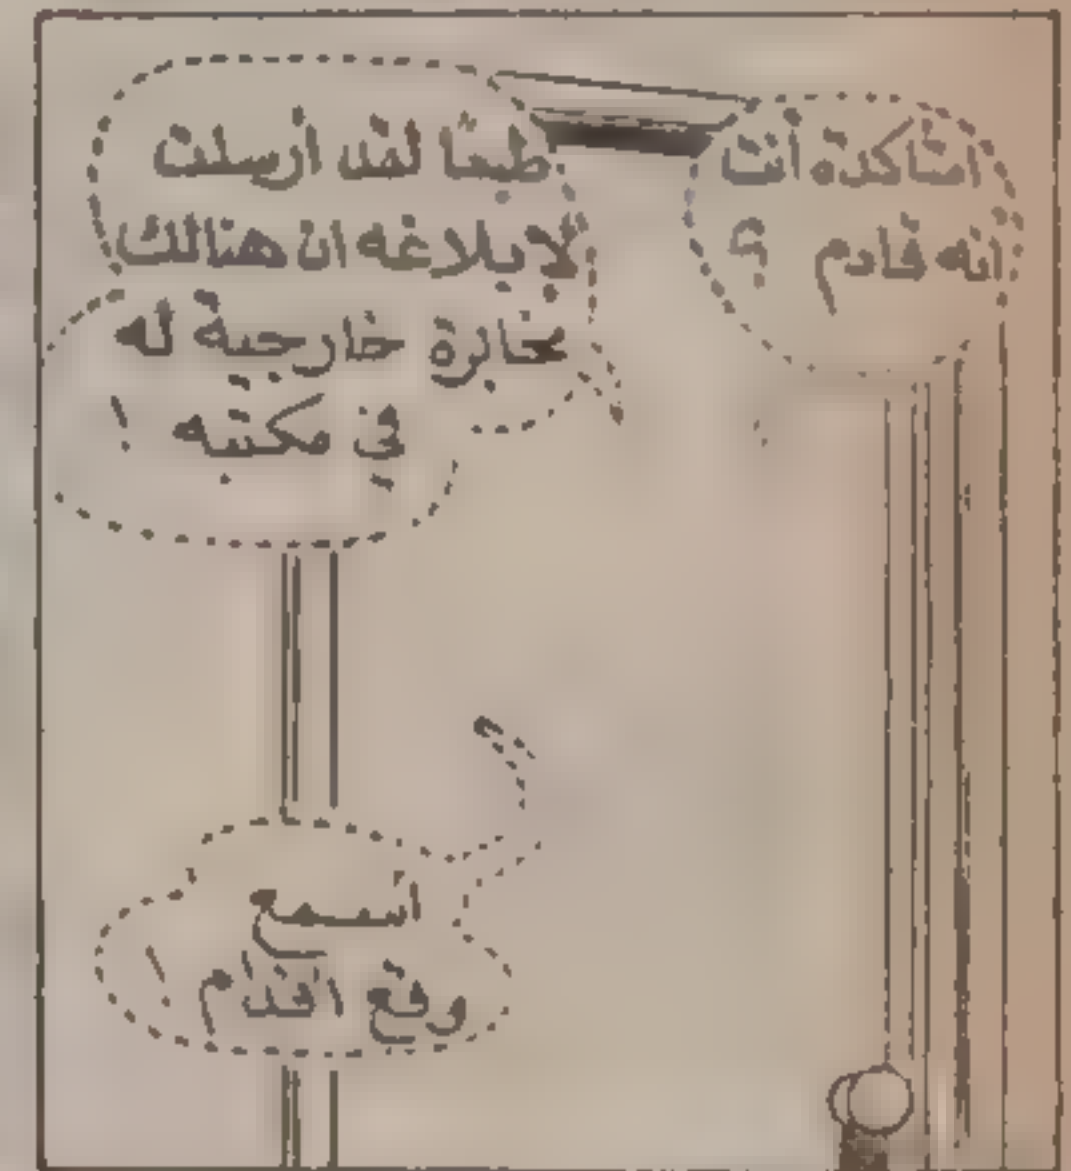 امتأكدة أنت
انه قادم ؟
طبعا لقد أرسلت
لإبلاغه ان هنالك
مخابرة خارجية له
في مكتبه !
أسمع
وقع اقدام !